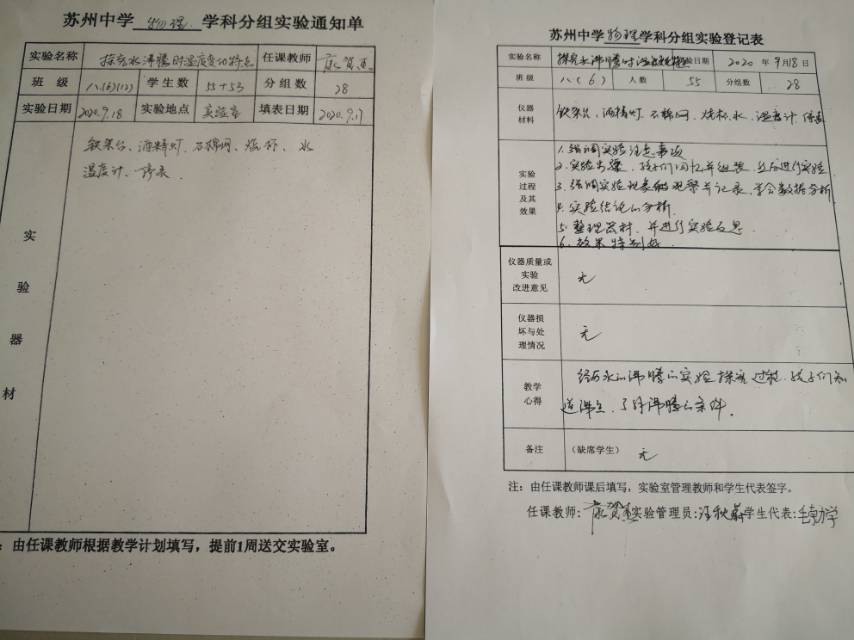 苏州中学 物理 学科分组实验通知单
实验名称 探究水沸腾时温度变化特点 任课教师
班级 八(6)(12) 学生数 55+53 分组数 28
实验日期 2020.9.18 实验地点 实验室 填表日期 2020.9.17
实验器材
铁架台、酒精灯、石棉网、烧杯、水
温度计、停表
：由任课教师根据教学计划填写，提前1周送交实验室。
苏州中学物理学科分组实验登记表
实验名称 探究水沸腾时温度 验日期 2020 年 9 月 18 日
班级 八(6) 人数 55 分组数 28
仪器
材料
铁架台、酒精灯、石棉网、烧杯、水、温度计、停表
实验
过程
及其
效果
1. 强调实验注意事项
2. 实验步骤，孩子们回忆并组装，然后进行实验
3. 强调实验现象的观察与记录，学会数据分析
4. 实验结论的分析.
5. 整理器材，并进行实验反思.
6. 效果特别好.
仪器质量或
实验
改进意见
无
仪器损
坏与处
理情况
无
教学
心得
经历水的沸腾的实验探究过程，孩子们知
道沸点，了解沸腾的条件.
备注 （缺席学生） 无
注：由任课教师课后填写，实验室管理教师和学生代表签字。
任课教师： 实验管理员： 学生代表：